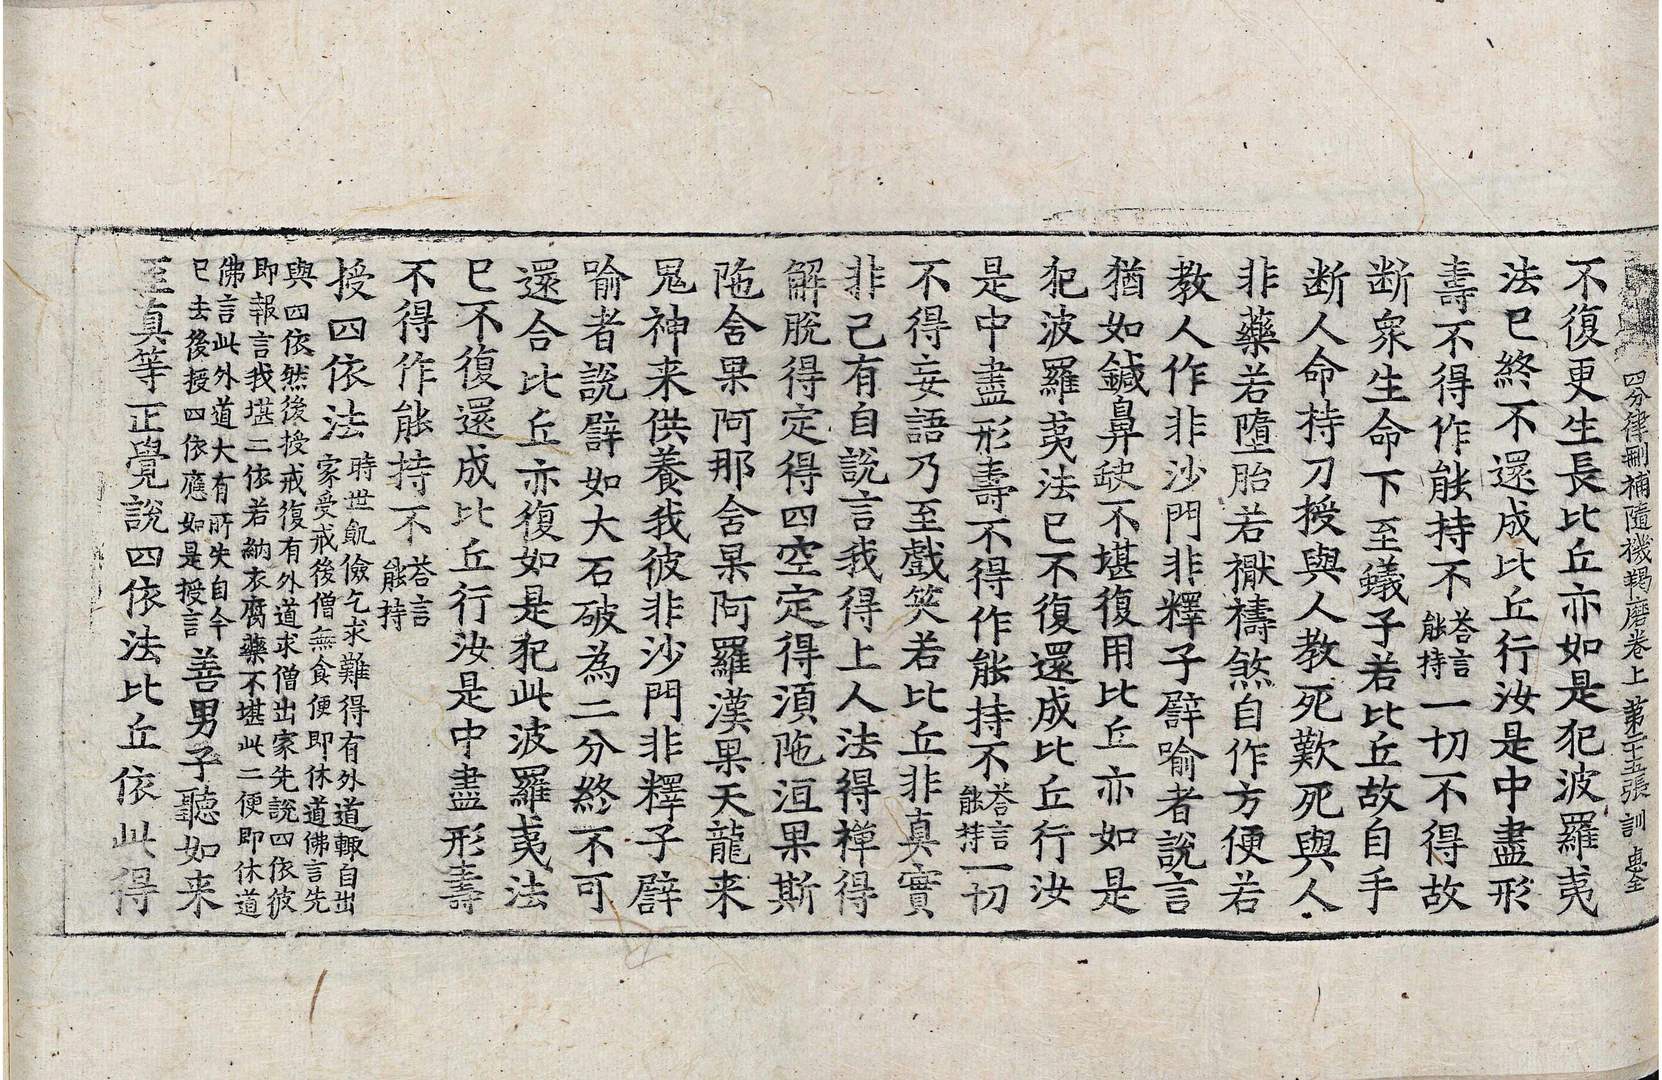 四分律刪補隨機羯磨卷上 第二十五張 訓
不復更生長比丘亦如是犯波羅夷
法已終不還成比丘行汝是中盡形
壽不得作能持不荅言能持一切不得故
断衆生命下至蟻子若比丘故自手
断人命持刀授與人教死歎死與人
非藥若墮胎若禳禱煞自作方便若
教人作非沙門非釋子譬喻者說言
猶如鍼鼻缺不堪復用比丘亦如是
犯波羅夷法已不復還成比丘行汝
是中盡形壽不得作能持不荅言能持一切
不得妄語乃至戲笑若比丘非真實
非己有自說言我得上人法得禅得
解脫得定得四空定得湏陁洹果斯
陁舍果阿那舍果阿羅漢果天龍来
鬼神来供養我彼非沙門非釋子譬
喻者說譬如大石破為二分終不可
還合比丘亦復如是犯此波羅夷法
已不復還成比丘行汝是中盡形壽
不得作能持不荅言能持
授四依法時世飢儉乞求難得有外道輙自出
家受戒後僧無食便即休道佛言先
與四依然後授戒復有外道求僧出家先說四依彼
即報言我堪二依若納衣腐藥不堪此二便即休道
佛言此外道大有所失自今
已去後授四依應如是授言善男子聽如来
至真等正覺說四依法比丘依此得